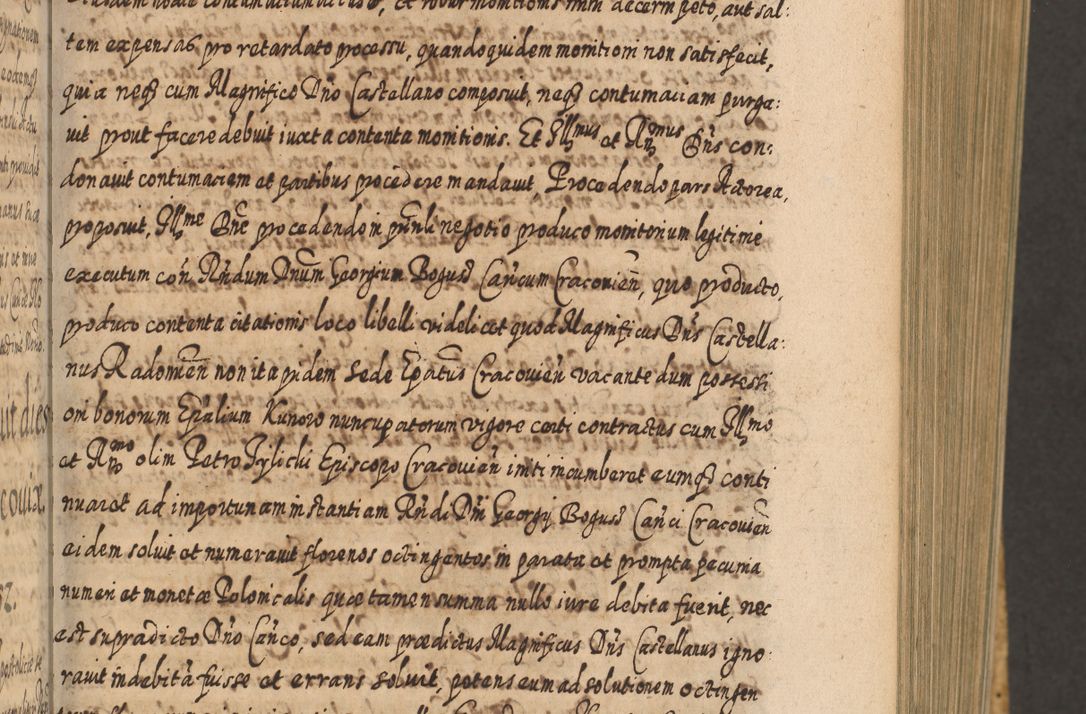 tem expensas pro retardato processu, quandoquidem monitioni non satisfecit,
quia neq3 cum Magnifico Dno Castellano composuit, neq3 contumaciam purga:
uit prout facere debuit iuxta contenta monitionis. Et Illmus et Rmus Dns con:
donauit contumaciam et partibus procedere mandauit, Procedendo pars Actorea,
proposuit, Illme Dne procedendo in pnnli negotio produco monitorium legitime
executum con Rndum Dnum Georgium Boguss Cancum Cracouien, quo producto,
produco contenta citationis loco libelli videlicet quod Magnificus Dns Castella:
nus Radomien non ita pridem Sede Epatus Cracouien vacante dum possessi
oni bonorum Epalium Kunowo nuncupatorum vigore certi contractus cum Illmo
et Rmo olim Petro Tylicki Episcopo Cracouien initi incumberet eumq3 conti
nuaret ad importunam instantiam Rndi Dni Georgij Boguss Canci Cracouien
eidem soluit et numerauit florenos octingentos in parata et prompta pecunia
numeri et monetæ Polonicalis quæ tamen summa nullo iure debita fuerit, nec
est supradicto Dno Canco, sed eam prædictus Magnificus Dns Castellanus igno
rauit indebità fuisse et errans soluit, potens eum ad solutionem octingen